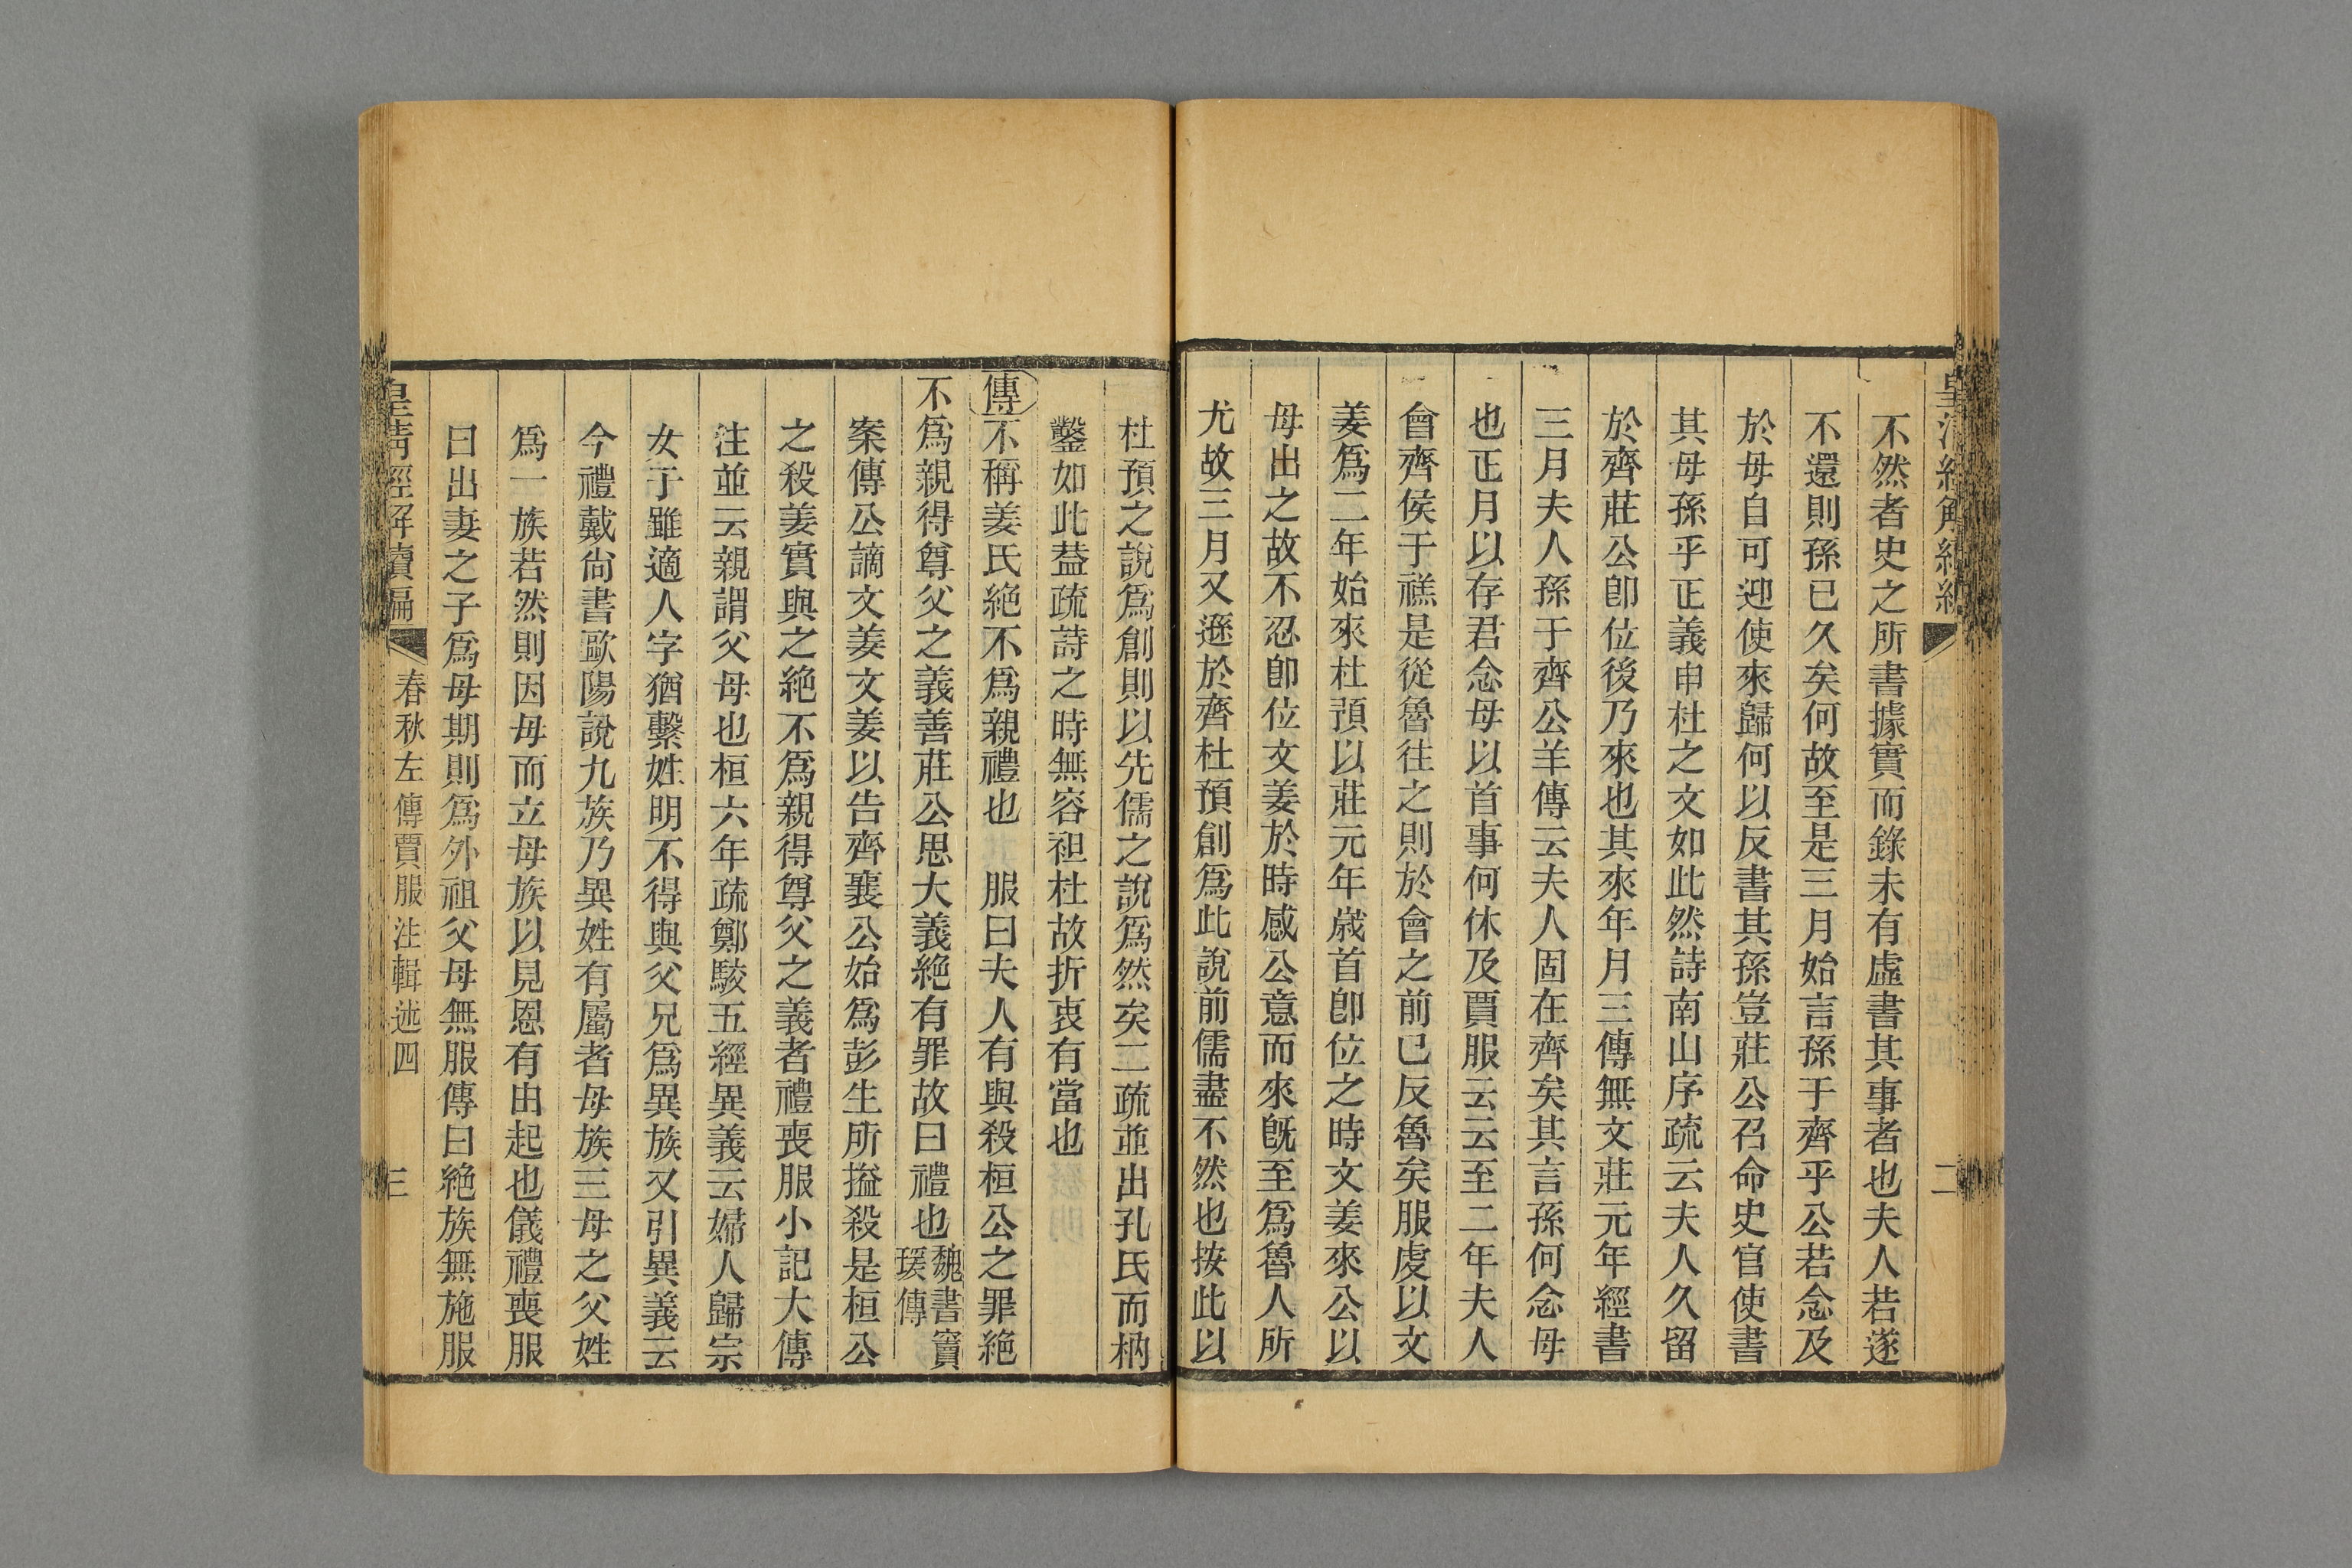 不然者史之所書據實而錄未有虛書其事者也夫人若遂
不還則孫已久矣何故至是三月始言孫于齊乎公若念及
於母自可迎使來歸何以反書其孫豈莊公召命史官使書
其母孫乎正義申杜之文如此然詩南山序疏云夫人久留
於齊莊公卽位後乃來也其來年月三傳無文莊元年經書
三月夫人孫于齊公羊傳云夫人固在齊矣其言孫何念母
也正月以存君念母以首事何休及賈服云云至二年夫人
會齊侯于禚是從魯往之則於會之前已反魯矣服虔以文
姜爲二年始來杜預以莊元年歲首卽位之時文姜來公以
母出之故不忍卽位文姜於時感公意而來旣至爲魯人所
尤故三月又遜於齊杜預創爲此說前儒盡不然也按此以
杜預之說爲創則以先儒之說爲然矣二疏並出孔氏而枘
鑿如此葢疏詩之時無容袒杜故折衷有當也
傳不稱姜氏絕不爲親禮也　服曰夫人有與殺桓公之罪絕
不爲親得尊父之義善莊公思大義絕有罪故曰禮也魏書竇瑗傳
案傳公謫文姜文姜以告齊襄公始爲彭生所搤殺是桓公
之殺姜實與之絕不爲親得尊父之義者禮喪服小記大傳
注並云親謂父母也桓六年疏鄭駮五經異義云婦人歸宗
女子雖適人字猶繫姓明不得與父兄爲異族又引異義云
今禮戴尙書歐陽說九族乃異姓有屬者母族三母之父姓
爲一族若然則因母而立母族以見恩有由起也儀禮喪服
曰出妻之子爲母期則爲外祖父母無服傳曰絕族無施服
皇清經解續編　春秋左傳賈服注輯述四　三